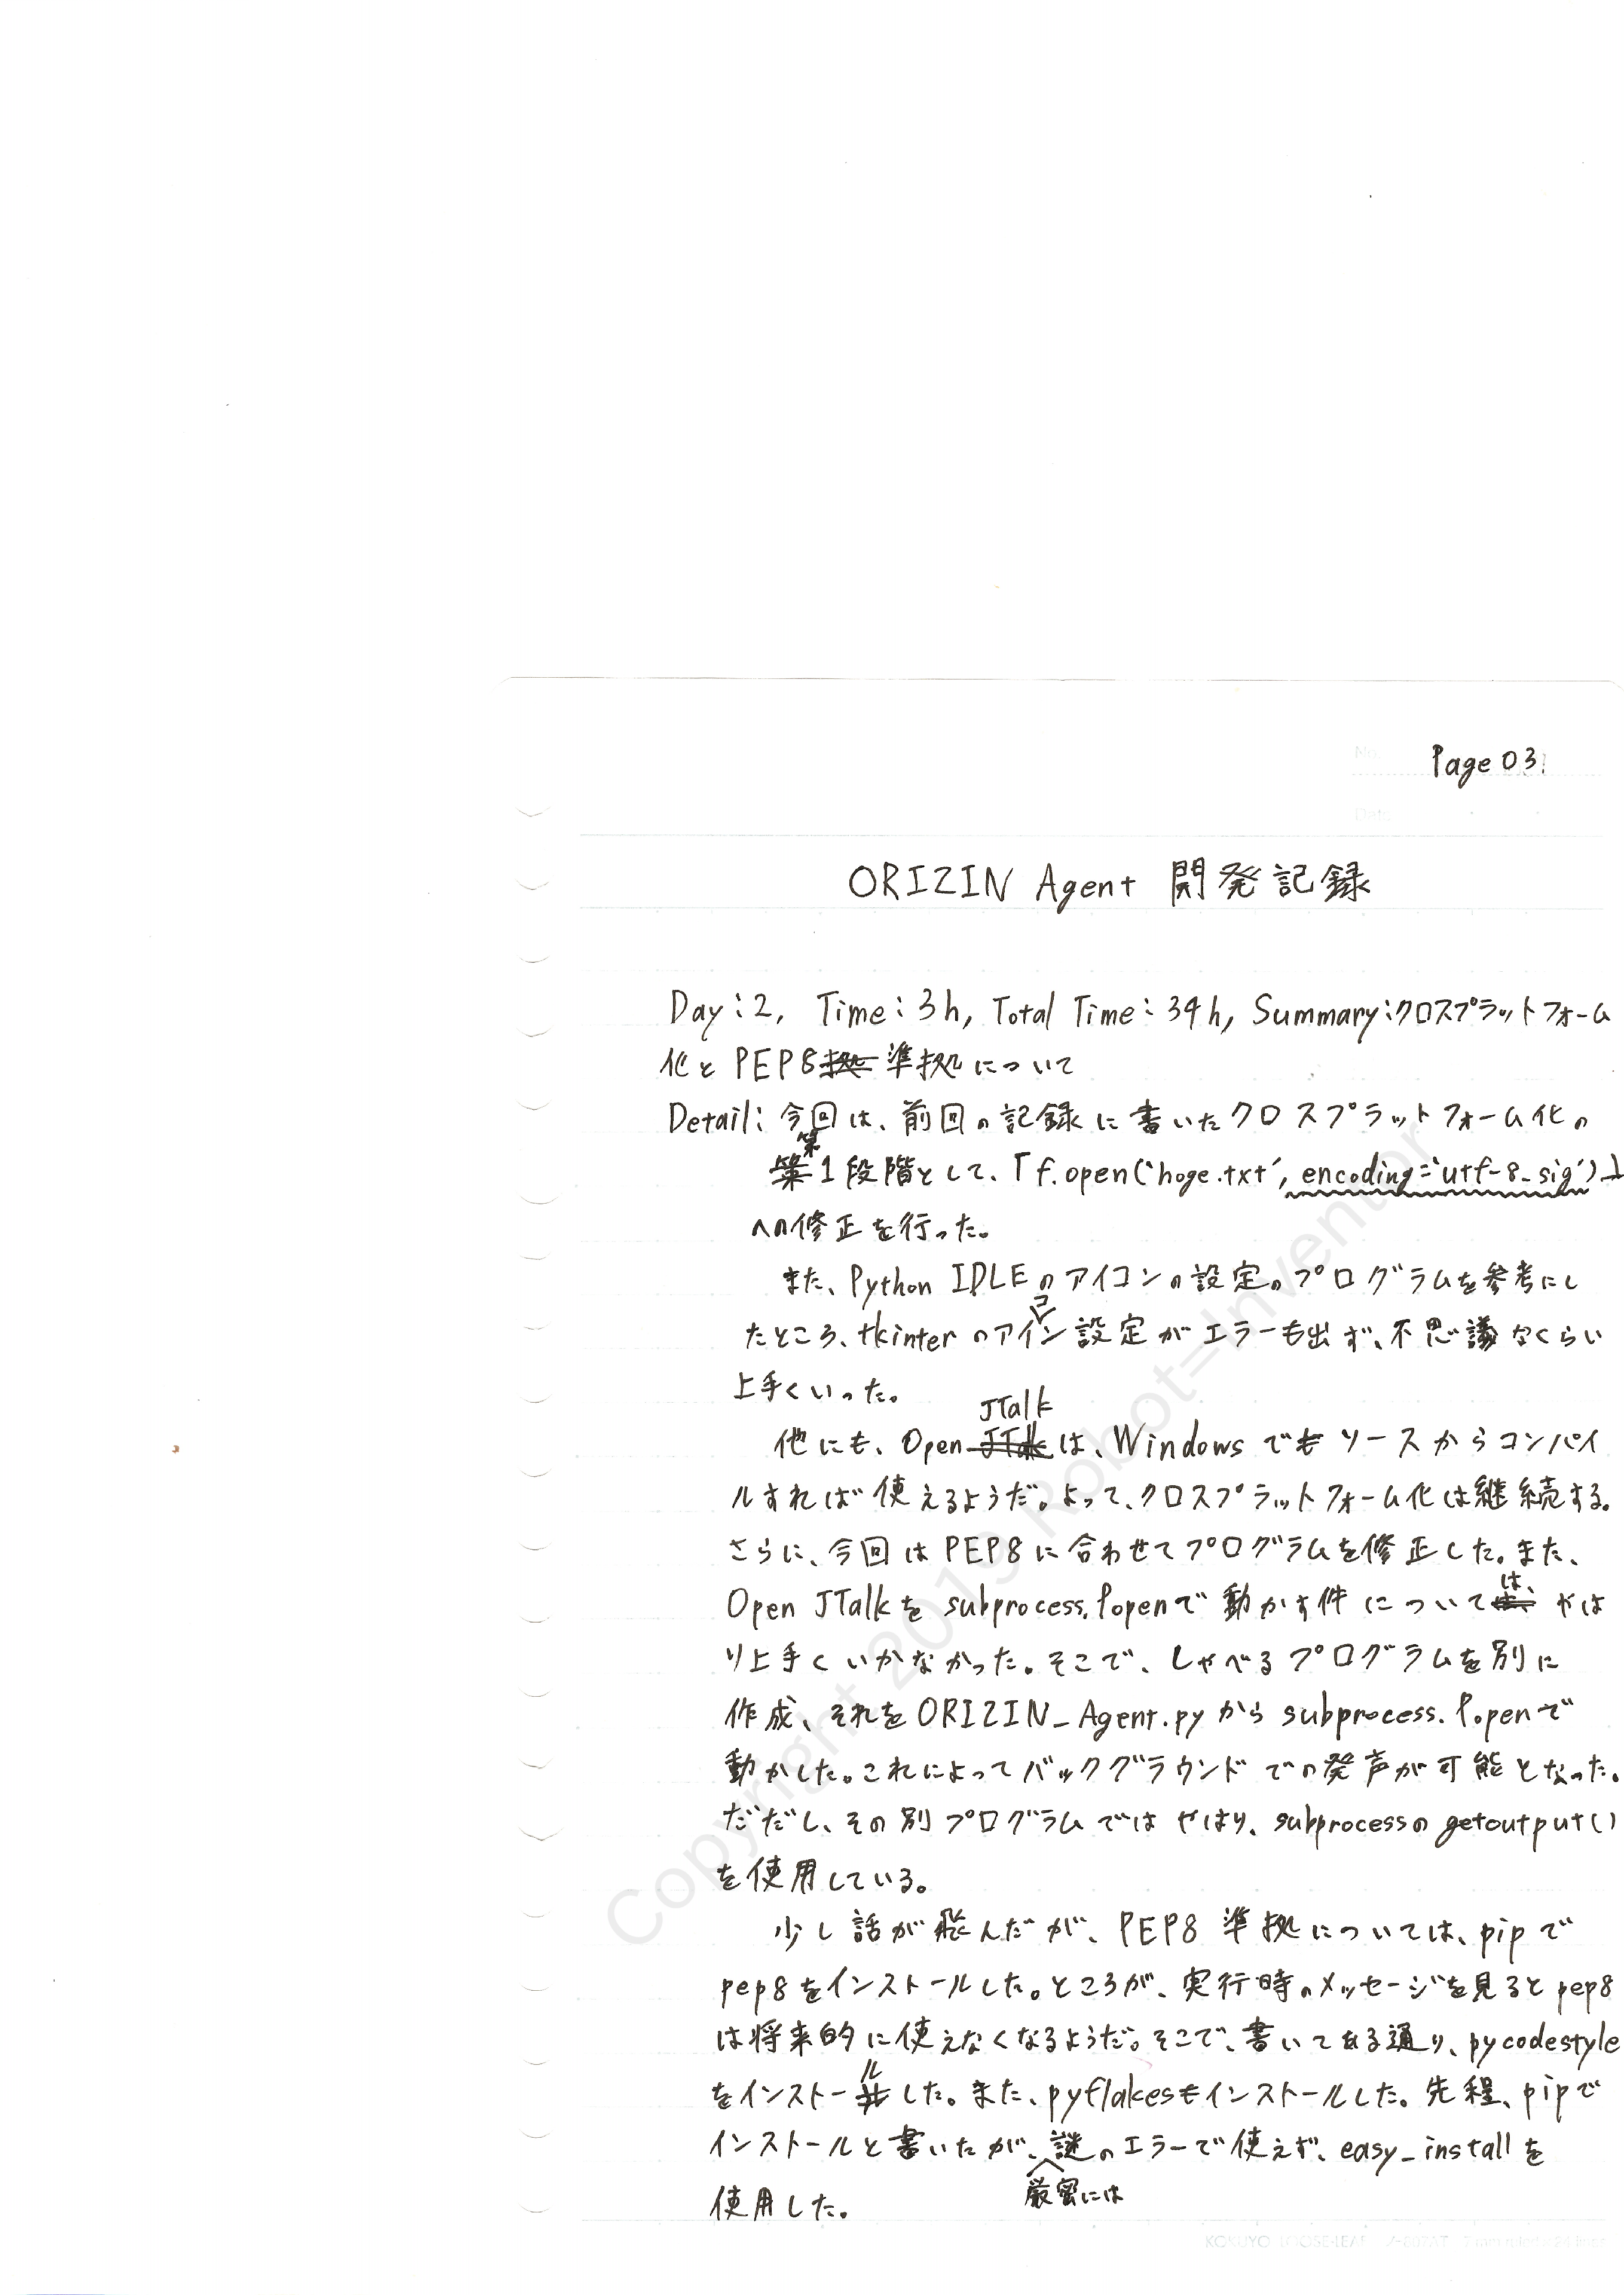 Page 03
ORIZIN Agent 開発記録
Day:2, Time:3h, Total Time:34h, Summary:クロスプラットフォーム
化とPEP8準拠について
Detail:今回は、前回の記録に書いたクロスプラットフォーム化の
第1段階として、「f.open('hoge.txt', encoding='utf-8_sig')」
への修正を行った。
また、Python IDLEのアイコンの設定のプログラムを参考にし
たところ、tkinterのアイコン設定がエラーも出ず、不思議なくらい
上手くいった。
他にも、Open JTalkは、Windowsでもソースからコンパイ
ルすれば使えるようだ。よって、クロスプラットフォーム化は継続する。
さらに、今回はPEP8に合わせてプログラムを修正した。また、
Open JTalkをsubprocess.Popenで動かす件については、やは
り上手くいかなかった。そこで、しゃべるプログラムを別に
作成、それをORIZIN_Agent.pyからsubprocess.Popenで
動かした。これによってバックグラウンドでの発声が可能となった。
だだし、その別プログラムではやはり、subprocessのgetoutput()
を使用している。
少し話が飛んだが、PEP8準拠については、pipで
pep8をインストールした。ところが、実行時のメッセージを見るとpep8
は将来的に使えなくなるようだ。そこで、書いてある通り、pycodestyle
をインストールした。また、pyflakesもインストールした。先程、pipで
インストールと書いたが、厳密には謎のエラーで使えず、easy_installを
使用した。
Copyright 2019 Robot=Inventor